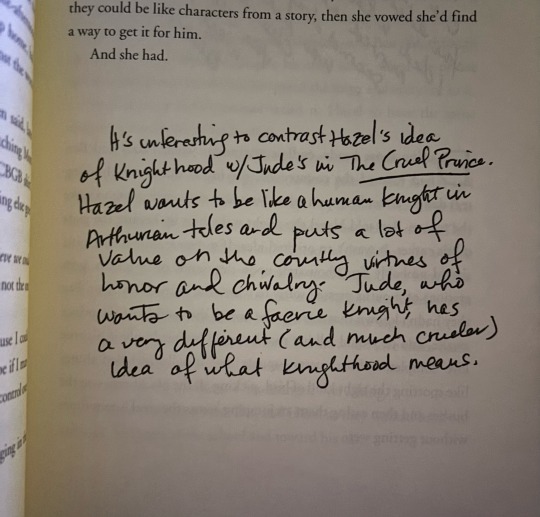 they could be like characters from a story, then she vowed she'd find
a way to get it for him.
And she had.
It's interesting to contrast Hazel's idea
of Knighthood w/Jude's in The Cruel Prince.
Hazel wants to be like a human knight in
Arthurian tales and puts a lot of
value on the courtly virtues of
honor and chivalry. Jude, who
wants to be a faerie knight, has
a very different (and much crueler)
idea of what knighthood means.